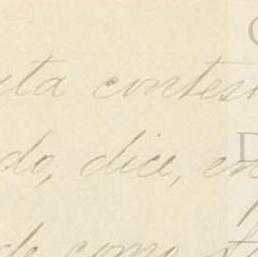 ta contes
do, dice, en
de como